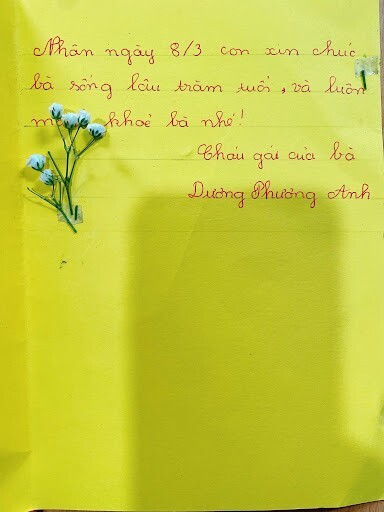 Nhân ngày 8/3 con xin chúc
bà sống lâu trăm tuổi, và luôn
khoẻ bà nhé!
Cháu gái của bà
Dương Phương Anh